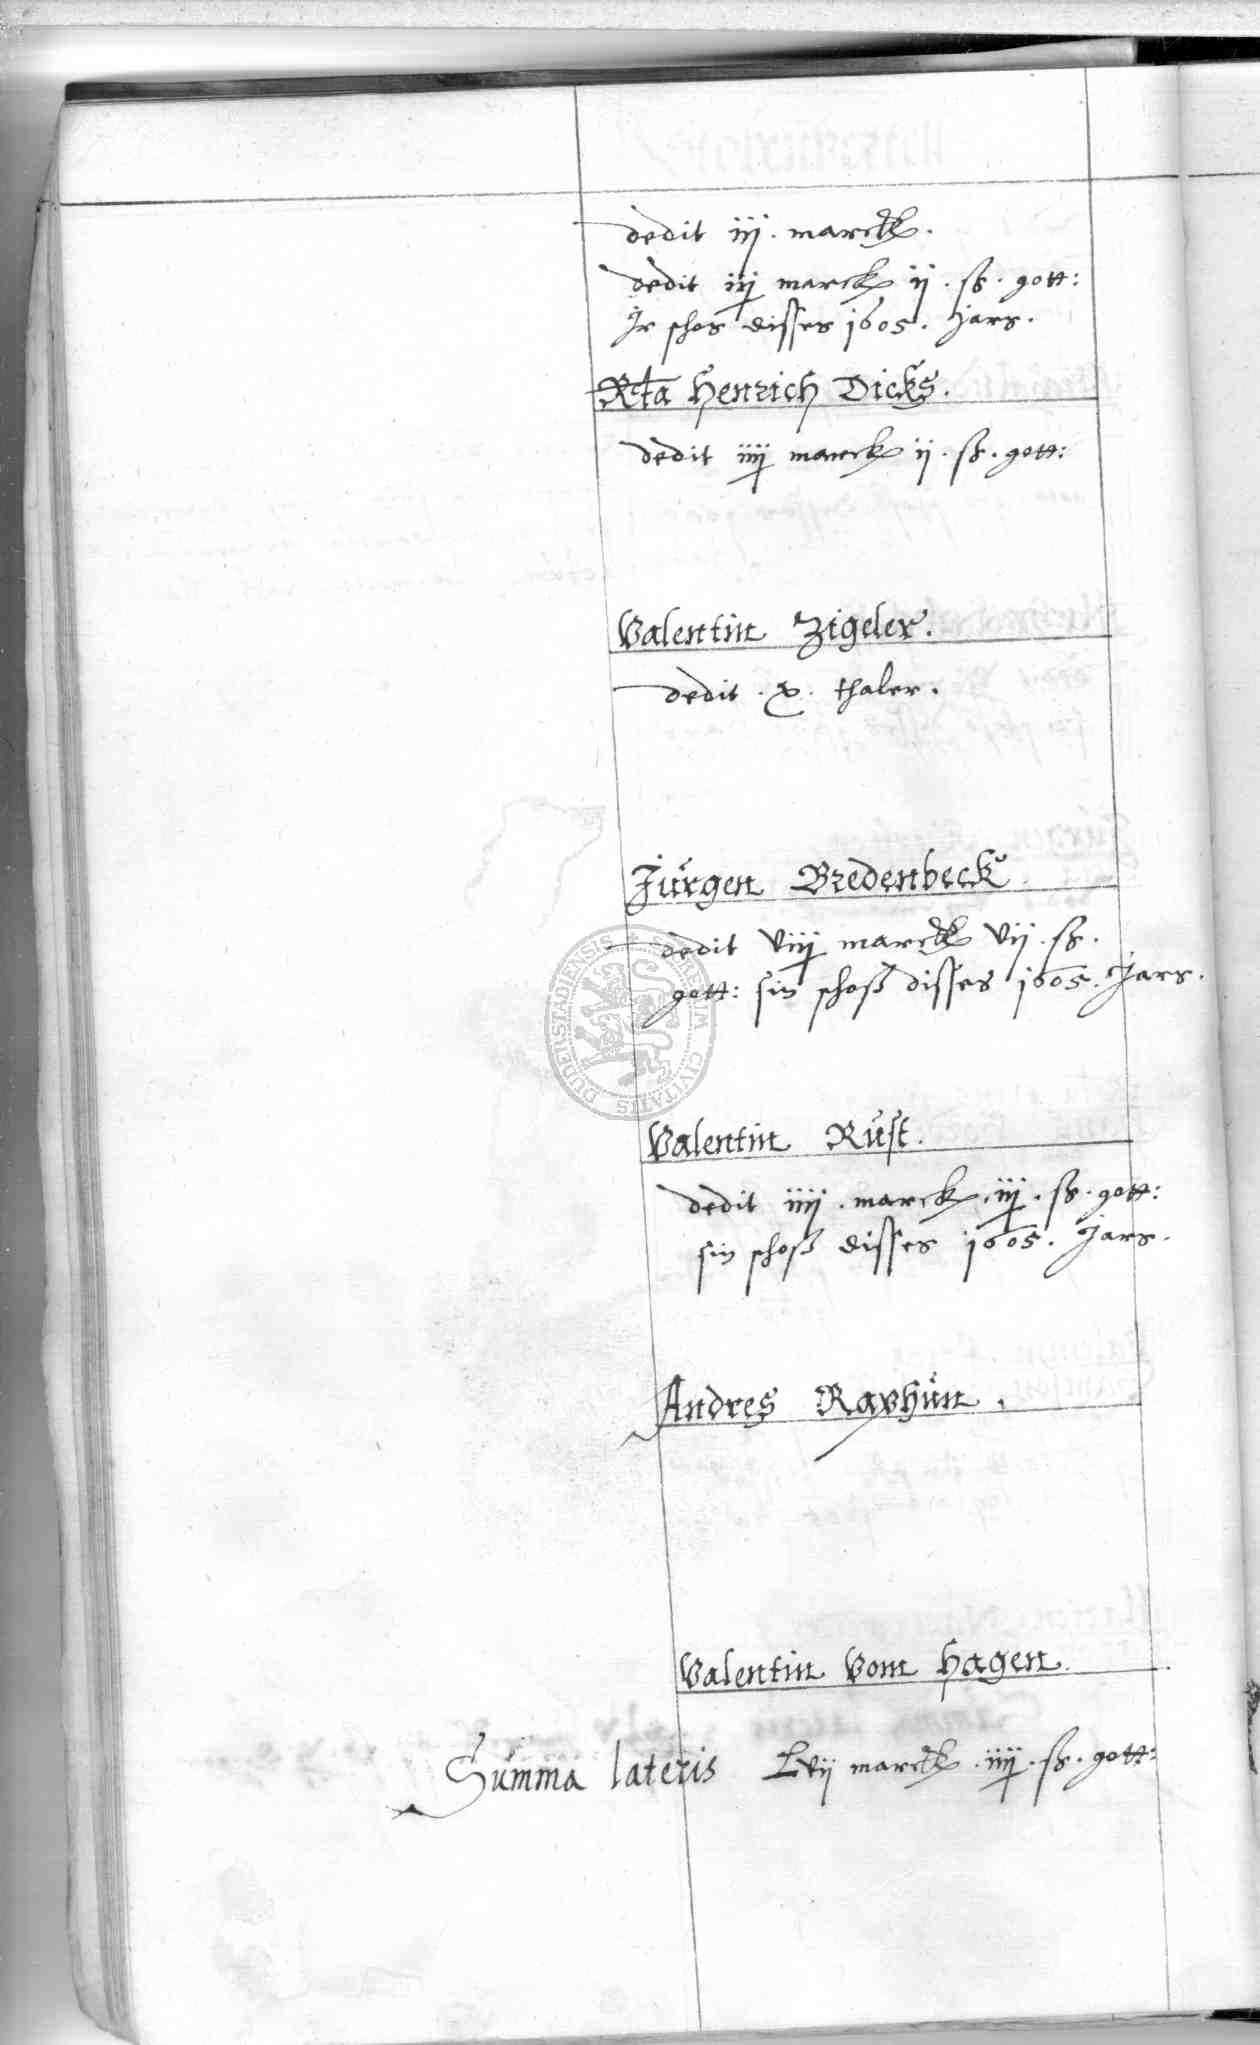 dedit iij. marck.
dedit iij marck ij. sß. gott:
Ir schos disses 1605. Jars.
Rta Henrich Dicks.
dedit iiij marck ij. sß. gott:
Valentin Zigeler.
dedit. x. thaler.
Jürgen Bredenbeck.
dedit viij marck vij. sß.
gott: sin schoß disses 1605. Jars.
Valentin Rust.
dedit iiij. marck. iij. sß. gott:
sin schoß disses 1605. Jars.
Andres Raphün.
Valentin vom Hagen.
Summa lateris Lvij marck. iiij. sß. gott:
SECRETUM CIVITATIS DUDERSTADIENSIS